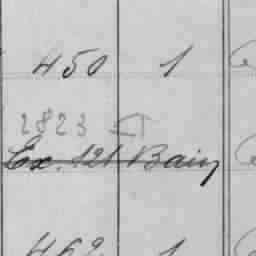 450 1
2823
Ex. 121 Bain
462 1